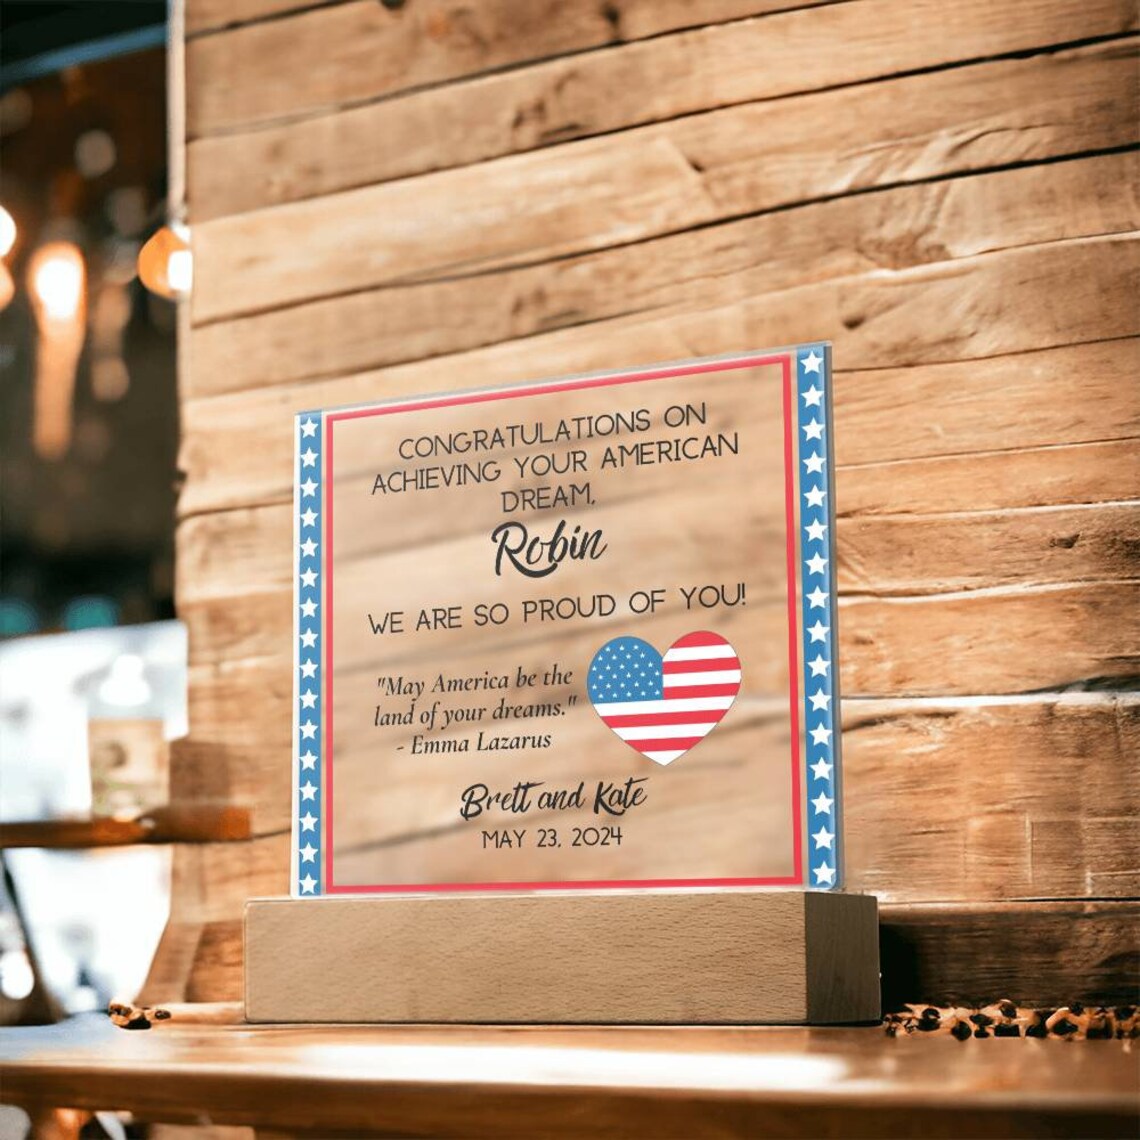 CONGRATULATIONS ON
ACHIEVING YOUR AMERICAN
DREAM,
Robin
WE ARE SO PROUD OF YOU!
"May America be the
land of your dreams."
- Emma Lazarus
Brett and Kate
MAY 23, 2024